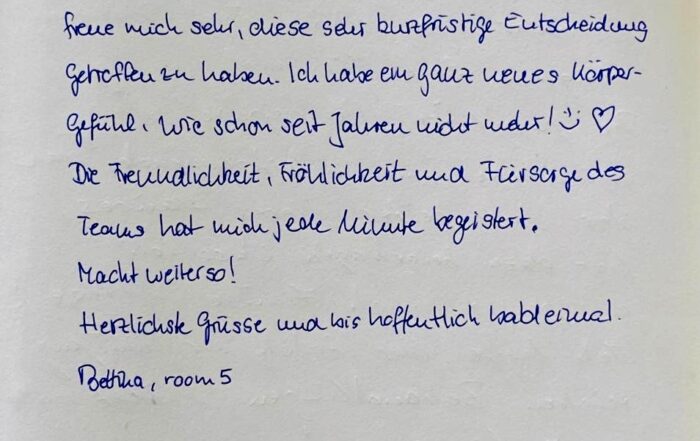 freue mich sehr, diese sehr kurzfristige Entscheidung
getroffen zu haben. Ich habe ein ganz neues Körper-
gefühl, wie schon seit Jahren nicht mehr! :) ♡
Die Freundlichkeit, Fröhlichkeit und Fürsorge des
Teams hat mich jede Minute begeistert.
Macht weiter so!
Herzlichste Grüsse und bis hoffentlich bald einmal.
Bettina, room 5